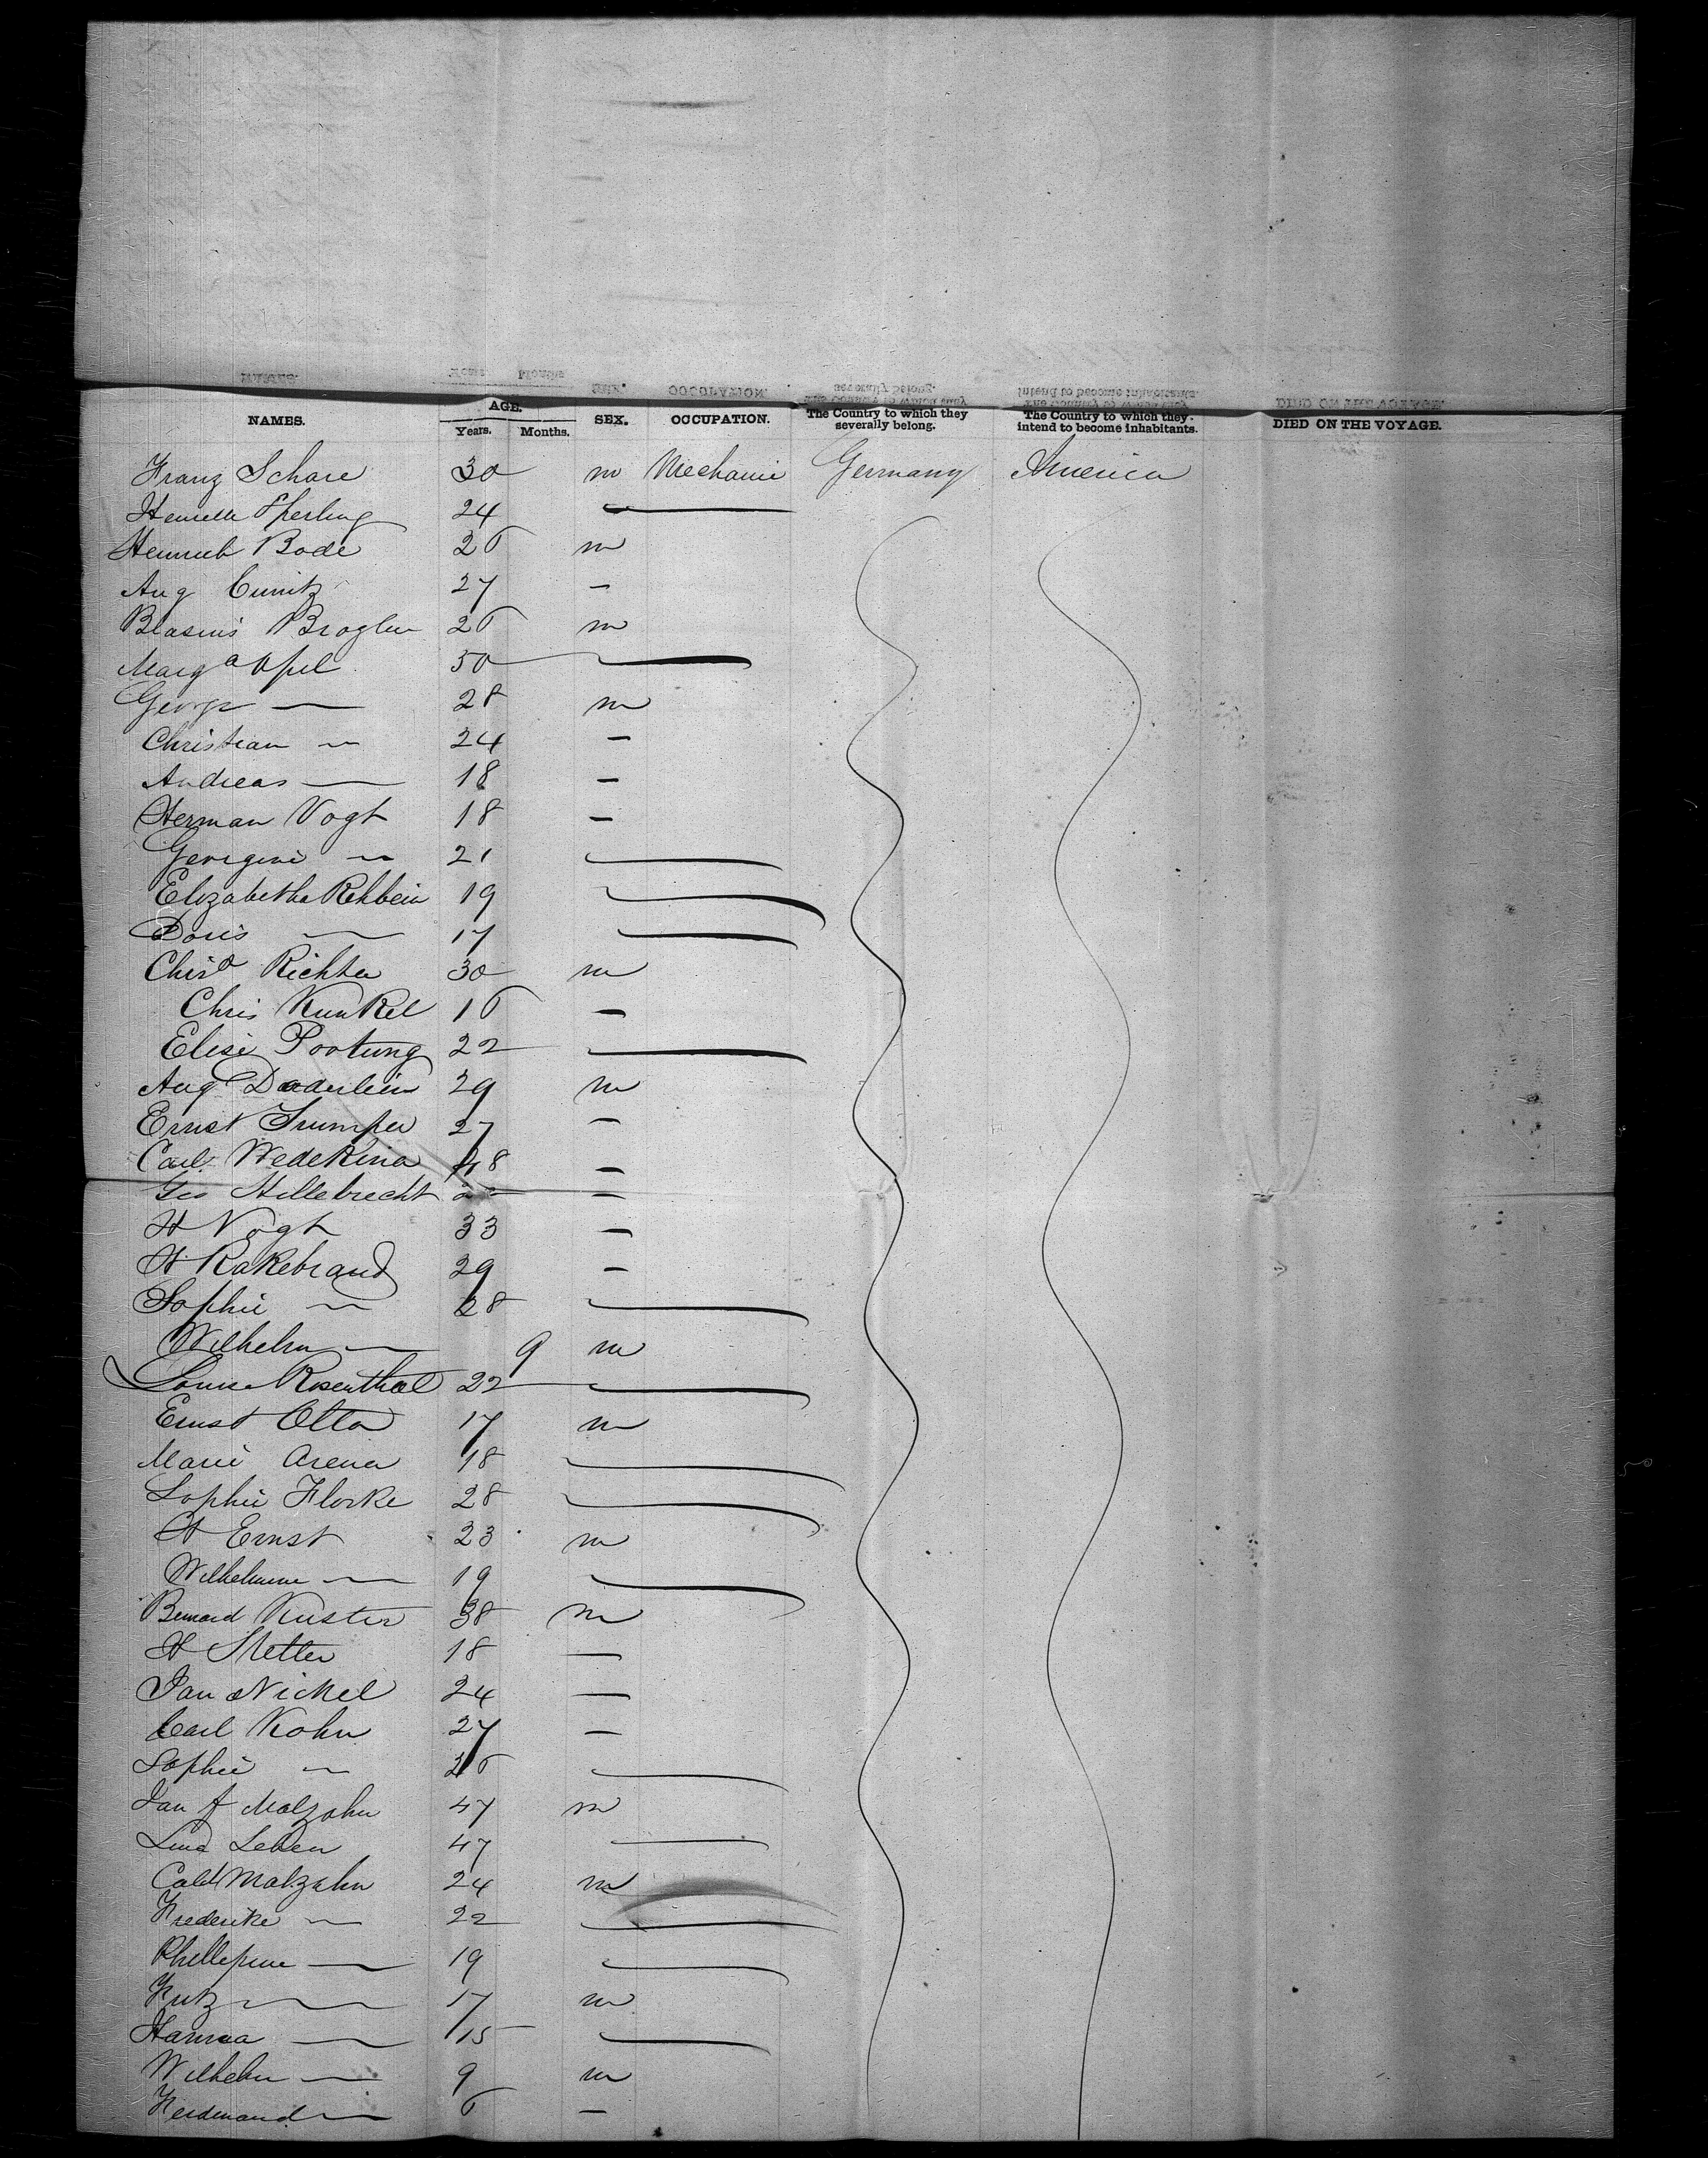 NAMES. AGE. Years. Months. SEX. OCCUPATION. The Country to which they severally belong. The Country to which they intend to become inhabitants. DIED ON THE VOYAGE.
Franz Schare 30 m Mechanic Germany America
Henrette Sperling 24 —
Heinrich Bode 26 m
Aug Cunitz 27 —
Blasius Broglen 26 m
Marg a Apel 50 —
George — 28 m
Christian — 24 —
Andreas — 18 —
Herman Vogt 18 —
Georgine — 21 —
Elizabetha Rehbein 19 —
Doris — 17 —
Chird Richter 30 m
Chris Kunkel 16 —
Elise Portung 22 —
Aug Daderlein 29 m
Ernst Trumper 27 —
Carl Wedekind 48 —
Geo Hillebrecht 22 —
H Vogt 33 —
H Rakebrand 29 —
Sophie — 28 —
Wilhelm — 9 m
Louise Rosenthal 22 —
Ernst Otto 17 m
Marie Arena 18 —
Sophie Florke 28 —
H Ernst 23 m
Wilhelmine — 19 —
Bernard Kuster 38 m
H Stetter 18 —
Jan Nickel 24 —
Carl Kohn 27 —
Sophie — 26 —
Jan f Malzahn 47 m
Lina Leben 47 —
Carl Malzahn 24 m
Frederike — 22 —
Phillepine — 19 —
Fritz — 17 m
Hanna — 15 —
Wilhelm — 9 m
Ferdinand — 6 —